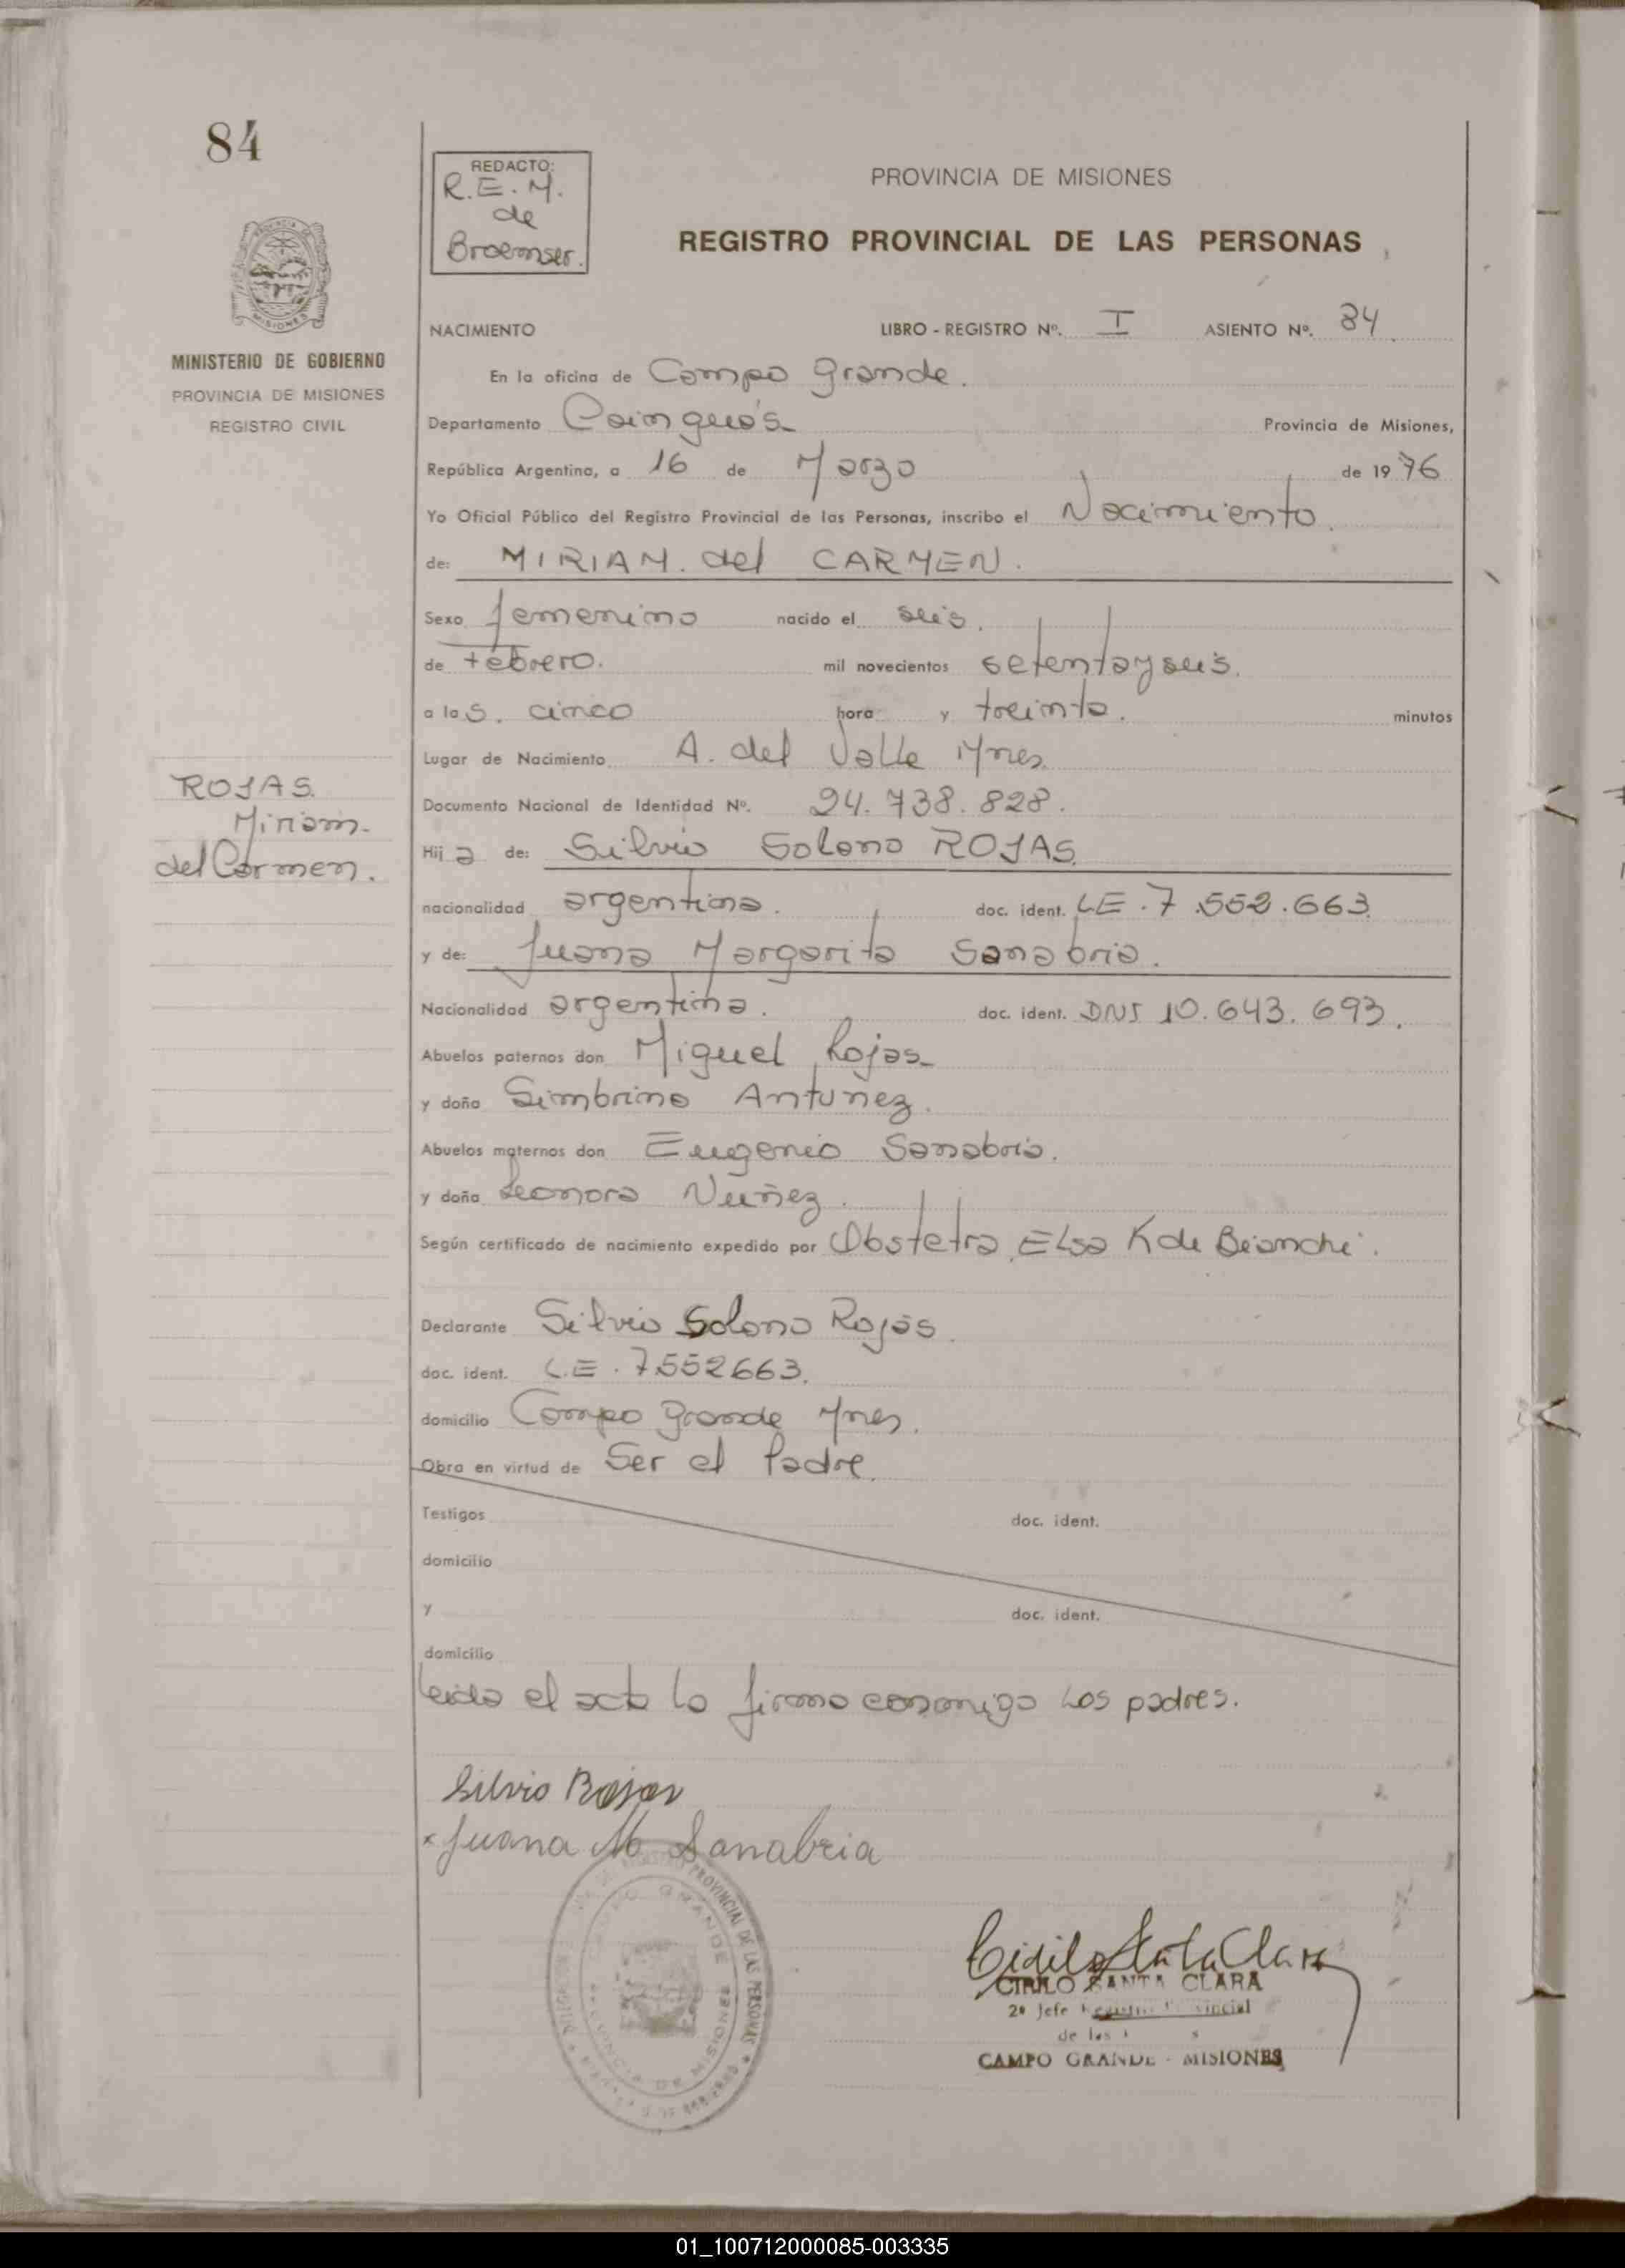 84
REDACTO:
R.E.M.
de
Broemser.
PROVINCIA DE MISIONES
REGISTRO PROVINCIAL DE LAS PERSONAS
MINISTERIO DE GOBIERNO
PROVINCIA DE MISIONES
REGISTRO CIVIL
NACIMIENTO LIBRO - REGISTRO Nº. I ASIENTO Nº. 84
En la oficina de Campo Grande.
Departamento Cainguás Provincia de Misiones,
República Argentina, a 16 de Marzo de 1976
Yo Oficial Público del Registro Provincial de las Personas, inscribo el Nacimiento.
de: MIRIAM. del CARMEN.
Sexo femenino nacido el seis.
de febrero. mil novecientos setentayseis.
a las. cinco hora y treinta. minutos
Lugar de Nacimiento A. del Valle Mnes.
Documento Nacional de Identidad Nº. 24.738.828.
ROJAS.
Miriam.
del Carmen.
Hija de: Silvio Solano ROJAS.
nacionalidad argentina. doc. ident. LE.7.552.663.
y de: Juana Margarita Sanabria.
Nacionalidad argentina. doc. ident. DNI 10.643.693.
Abuelos paternos don Miguel Rojas
y doña Simbrina Antunez.
Abuelos maternos don Eugenio Sanabria.
y doña Leonora Nuñez.
Según certificado de nacimiento expedido por Obstetra Elsa K de Bianchi.
Declarante Silvio Solano Rojas.
doc. ident. L.E. 7552663.
domicilio Campo Grande Mnes.
Obra en virtud de Ser el Padre.
Testigos doc. ident.
domicilio
y doc. ident.
domicilio
Leida el acta la firma conmigo los padres.
Silvio Rojas
x Juana M Sanabria
PROVINCIAL DE LAS PERSONAS
GRANDE
DE MISIONES
Cirilo Santa Clara
CIRILO SANTA CLARA
2º Jefe Registro Provincial
de las
CAMPO GRANDE - MISIONES
01_100712000085-003335